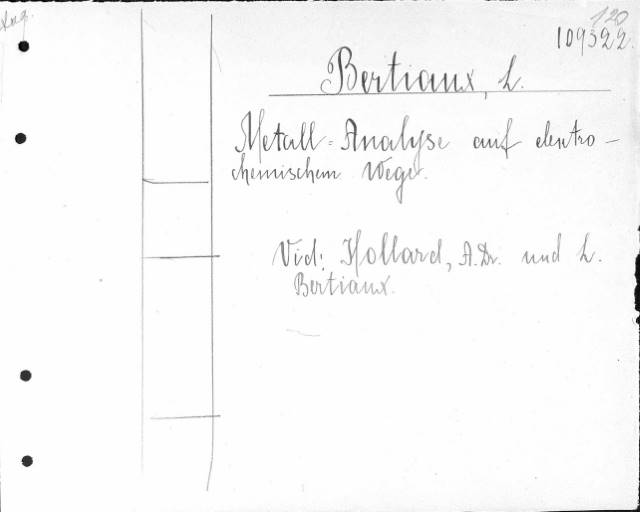 120
109322
Bertiaux, L.
Metall-Analyse auf elektro-
chemischem Wege.
Vid: Hollard, A. Dr. und L.
Bertiaux.